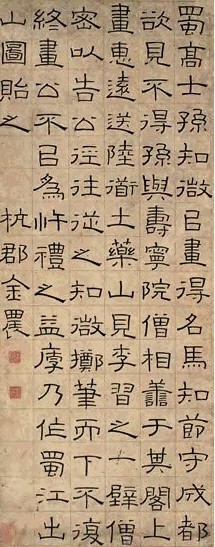 蜀高士孫知微㠯畫得名馬知節守成都
欲見不得孫與壽寧院僧相譱于其閣上
畫惠遠送陸道士藥山見李習之一壁僧
密以告公徑往從之知微擲筆而下不復
終畫公不㠯為忤禮之益厚乃作蜀江出
山圖貽之 杭郡金農